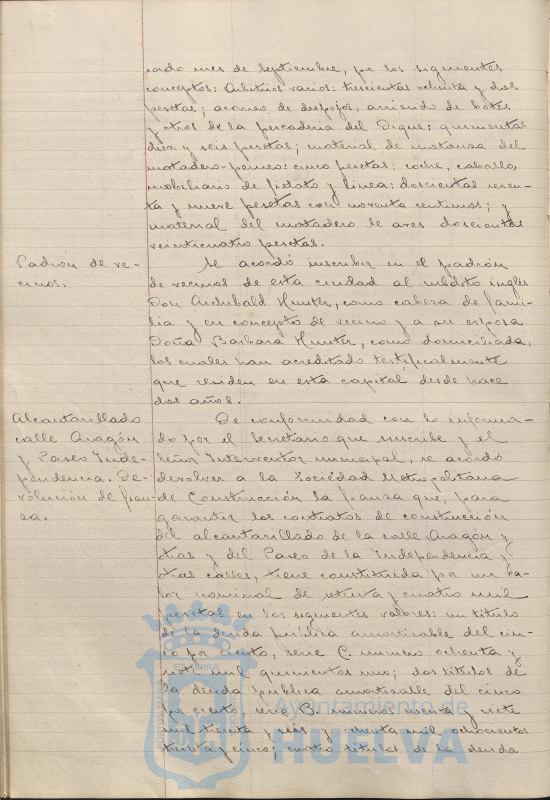 sado mes de Septiembre, por los siguientes
conceptos: Arbitrios varios: trescientas ochenta y dos
pesetas; acarreo de despojos, arriendo de botes
y otros de la pescaderia del Dique: quinientas
diez y seis pesetas; material de matanza del
matadero-perneo: cinco pesetas: coche, caballo,
mobiliario de fielato y linea: doscientas seten-
ta y nueve pesetas con noventa centimos; y
material del matadero de aves doscientas
veinticuatro pesetas.
Padron de ve-
cinos.
Se acordó inscribir en el padrón
de vecinos de esta ciudad al súbdito inglés
Don Archibald Hunter, como cabeza de fami-
lia y en concepto de vecino y a su esposa
Doña Barbara Hunter, como domiciliada,
los cuales han acreditado testificalmente
que residen en esta capital desde hace
dos años.
Alcantarillado
calle Aragón
y Paseo Inde-
pendencia. De-
volución de fian-
za.
De conformidad con lo informa-
do por el Secretario que suscribe y el
Señor Interventor municipal, se acordó
devolver a la Sociedad Metropolitana
de Construcción la fianza que, para
garantir los contratos de construcción
del alcantarillado de la calle Aragón y
otras y del Paseo de la Independencia y
otras calles, tiene constituida por un va-
lor nominal de setenta y cuatro mil
pesetas en los siguientes valores: un titulo
de la deuda pública amortizable del cin-
co por ciento, serie C. numero ochenta y
siete mil quinientos uno; dos titulos de
la deuda publica amortizable del cinco
por ciento serie B. numeros y siete
mil treinta y seis y mil ochocientos
treinta y cinco; cuatro titulos de la deuda
Ayuntamiento de
HUELVA